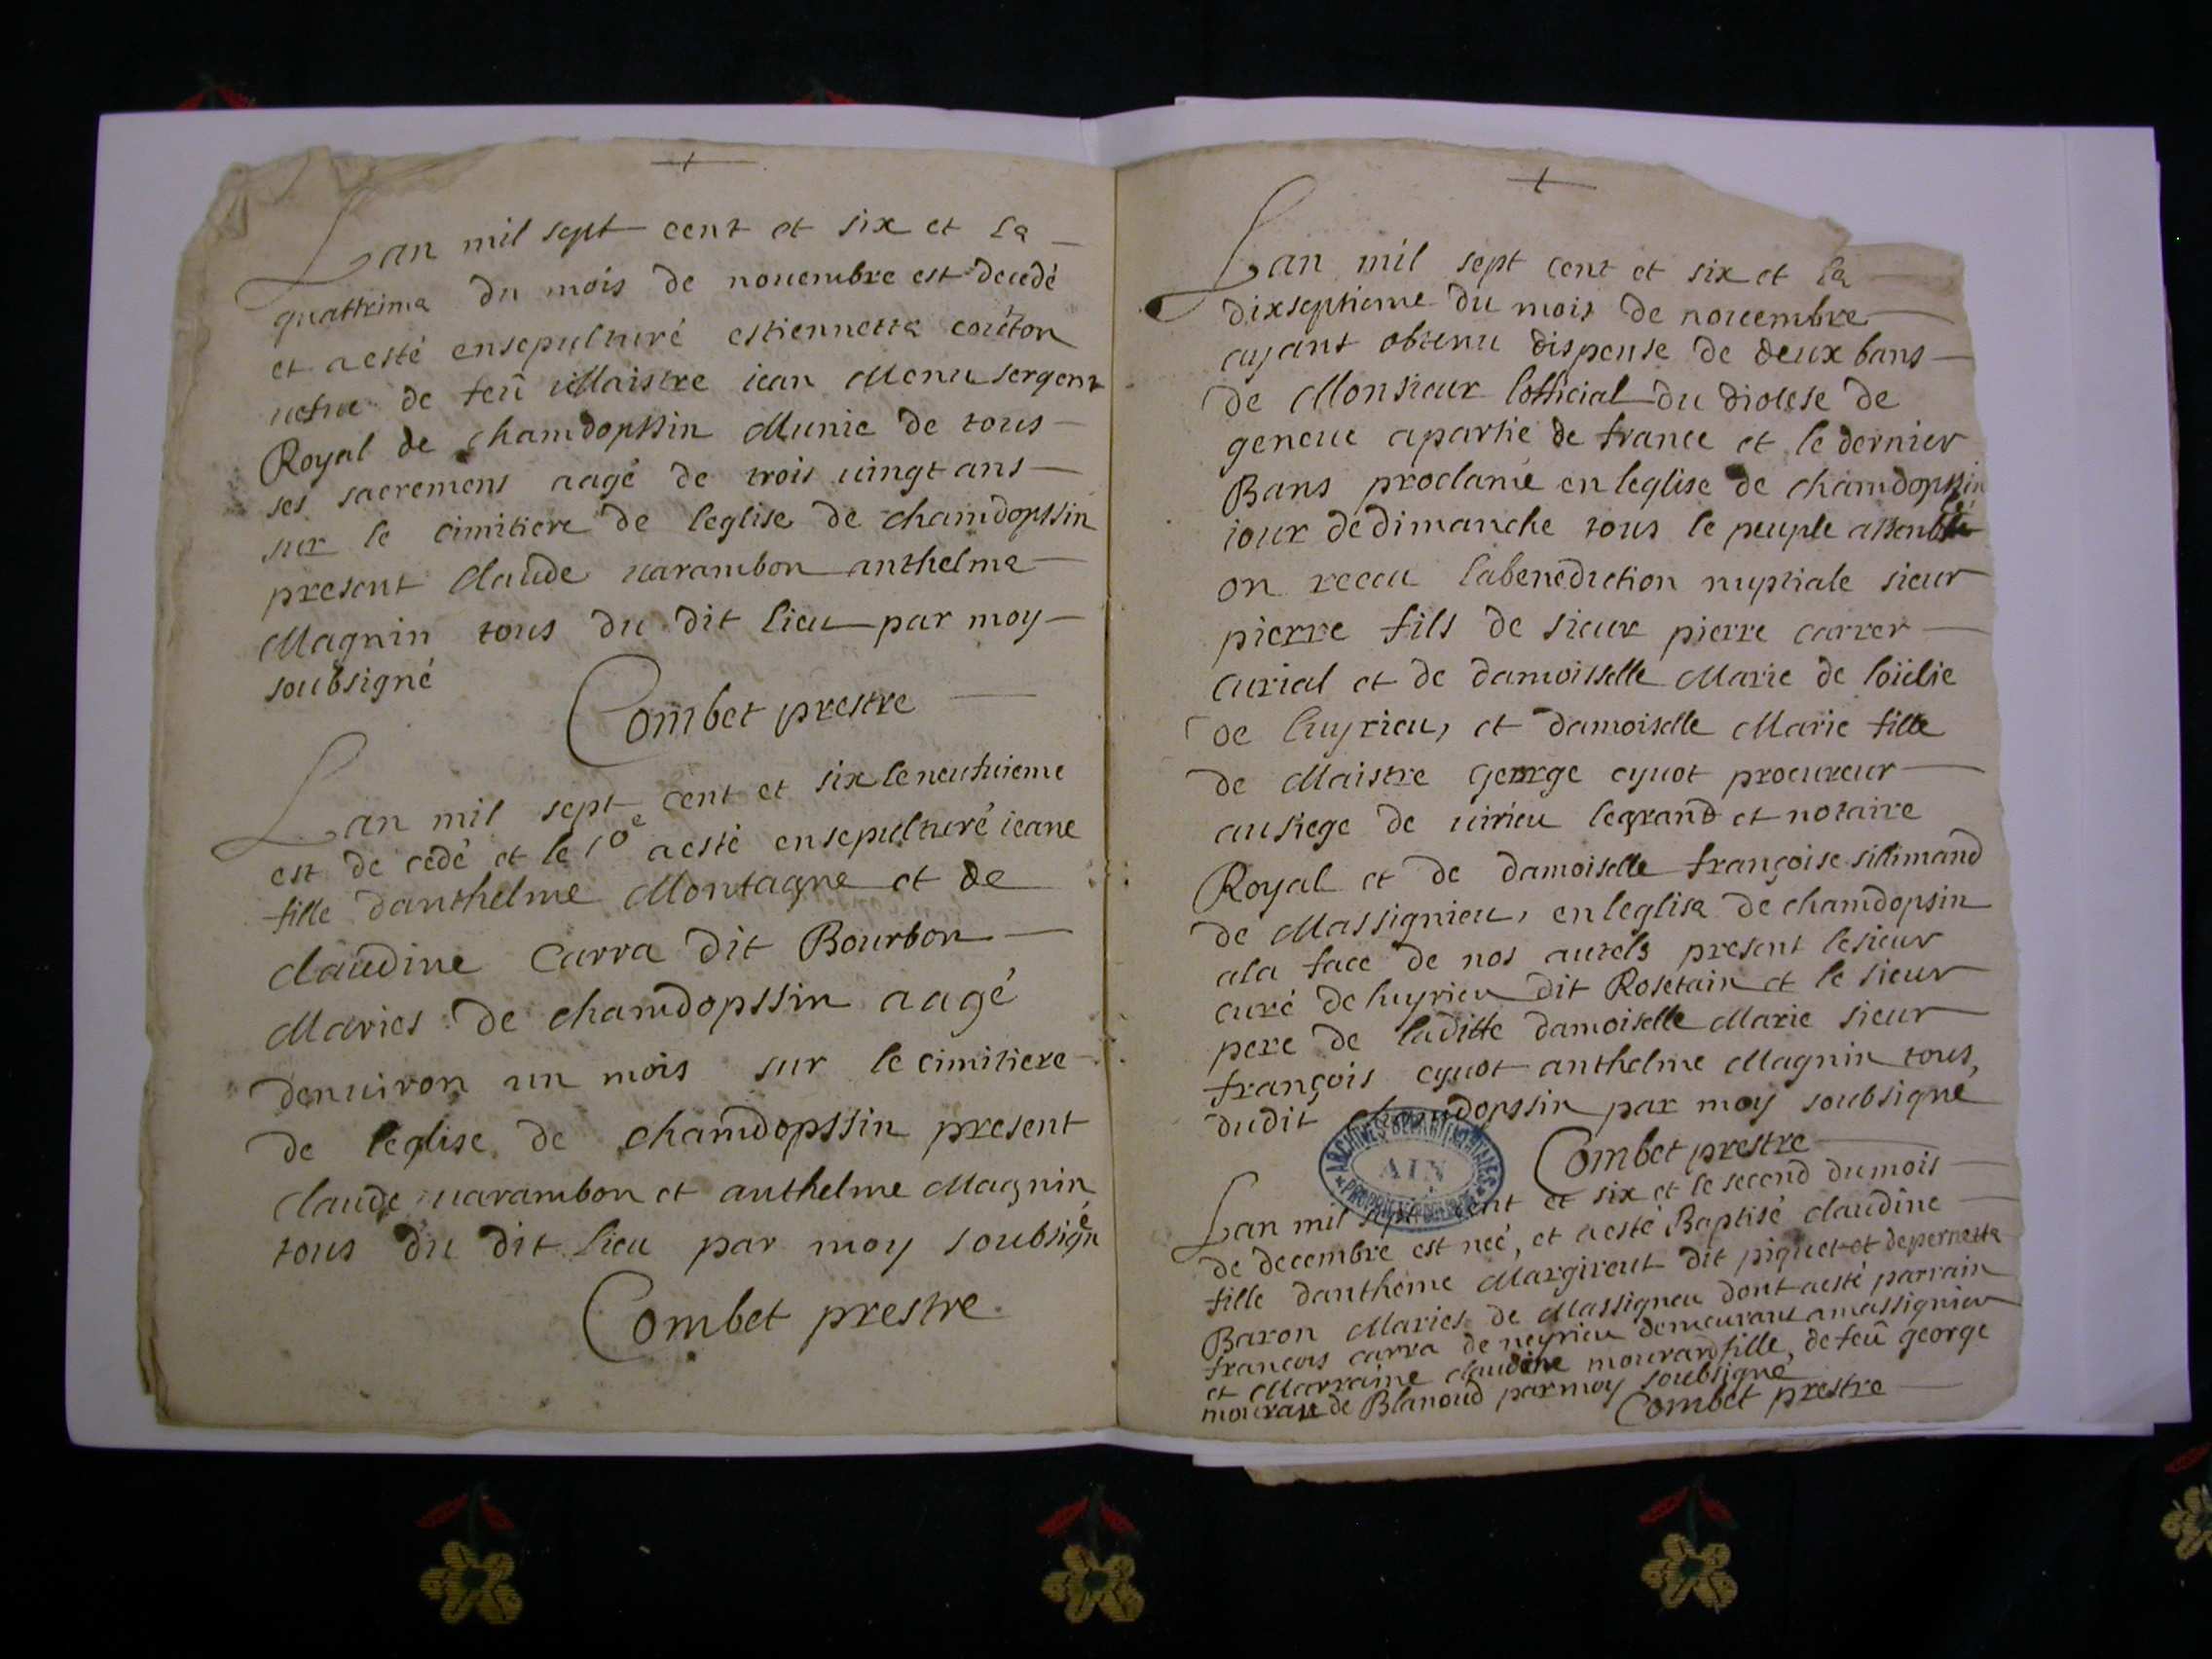 Lan mil sept cent et six et la
quattrima du mois de nouembre est decedé
et a esté ensepulturé estiennetta coûton
uefue de feû Maistre iean Menu sergent
Royal de chamdopssin Munie de tous
ses sacremens aagé de trois uingt ans
sur le cimitiere de leglise de chamdopssin
present claude uarambon anthelme
Magnin tous du dit lieu par moy
soubsigné
Combet prestre
Lan mil sept cent et six le neufuieme
est de cedé et le 10e a esté ensepulturé ieane
fille danthelme Montagne et de
claudine Carra dit Bourbon
Maries de chamdopssin aagé
denuiron un mois sur le cimitiere
de leglise de chamdopssin present
claude uarambon et anthelme Magnin
tous du dit lieu par moy soubsigné
Combet prestre
Lan mil sept cent et six et la
dixseptieme du mois de nouembre
ayant obtenu dispense de deux bans
de Monsieur lofficial du diocese de
geneue apartie de france et le dernier
Bans proclamé en leglise de chamdopssin
iour de dimanche tous le peuple assemblé
on receu labenediction nuptiale sieur
pierre fils de sieur pierre carrer
curial et de damoisselle Marie de
de luyrieu, et damoiselle Marie fille
de Maistre George cyuot procureur
au siege de uirieu legrand et notaire
Royal et de damoiselle françoise sillimand
de Massignieu, en leglise de chamdopsin
ala face de nos autels present lesieur
curé de luyrieu dit Rosetain et le sieur
pere de laditte damoiselle Marie sieur
françois cyuot anthelme Magnin tous
dudit chamdopssin par moy soubsigné
Combet prestre
Lan mil sept cent et six et le second du mois
de decembre est neé, et a esté Baptisé claudine
fille dantheme Margireut dit piquet et de pernetta
Baron Maries de Massigneu dont a esté parrain
francois carra de neyrieu demeurant amassignieu
et Marraine claudine mourand fille, de feû george
mourau de Blanoud par moy soubsigné
Combet prestre
ARCHIVES DEPARTEMENTALES
AIN
PROPRIETE PUBLIQUE